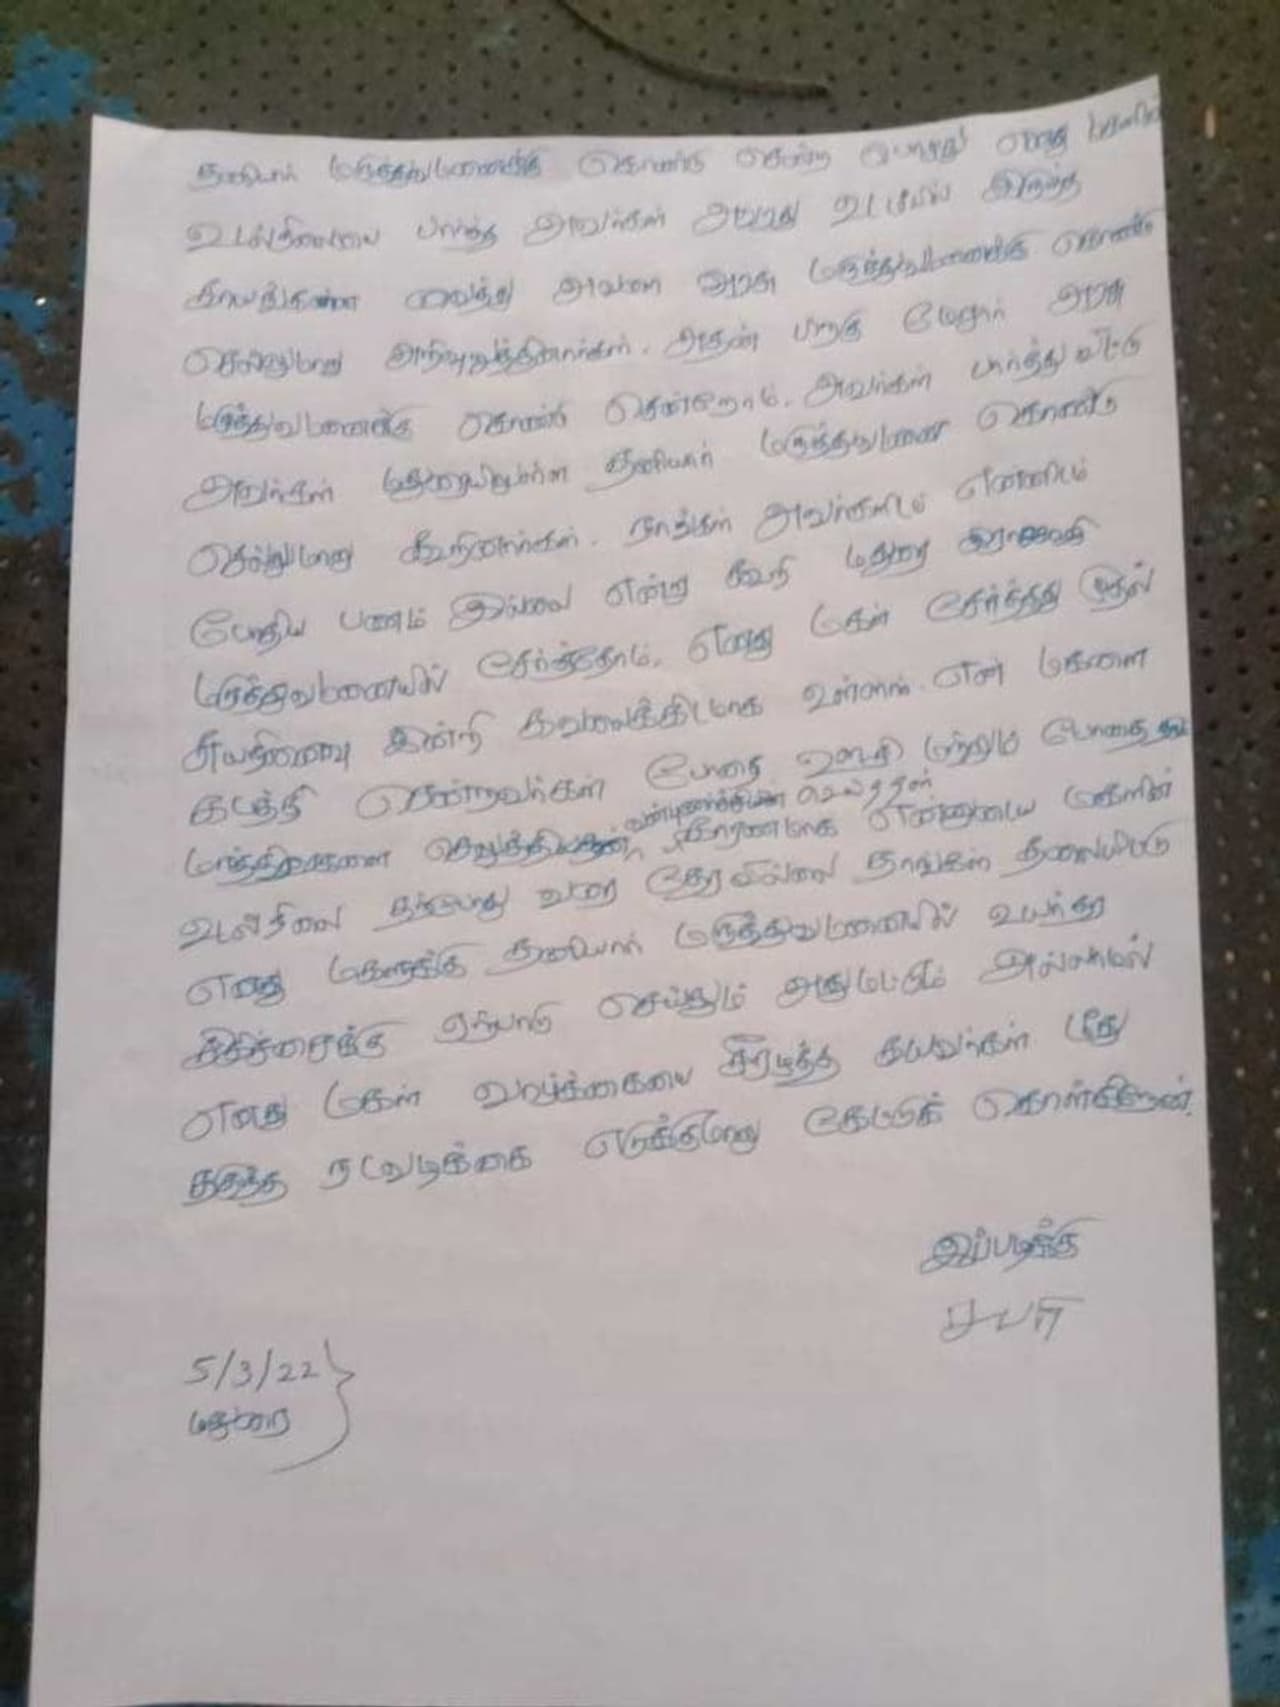 தனியார் மருத்துவமனைக்கு கொண்டு சென்ற பொழுது எனது மகளின்
உடல்நிலையை பார்த்த அவர்கள் அவரது உடலில் இருந்த
காயங்களை வைத்து அவளை அரசு மருத்துவமனைக்கு கொண்டு
செல்லுமாறு அறிவுறுத்தினார்கள். அதன் பிறகு மேலூர் அரசு
மருத்துவமனைக்கு கொண்டு சென்றோம். அவர்கள் பார்த்து விட்டு
அவர்கள் மதுரையிலுள்ள தனியார் மருத்துவமனை கொண்டு
செல்லுமாறு கூறினார்கள். நாங்கள் அவர்களிடம் எண்ணிடம்
போதிய பணம் இல்லை என்று கூறி மதுரை இராஜாஜி
மருத்துவமனையில் சேர்த்தோம். எனது மகள் சேர்த்தது முதல்
சுயநினைவு இன்றி கவலைக்கிடமாக உள்ளாள். என் மகளை
கடத்தி சென்றவர்கள் போதை ஊசி மற்றும் போதை
வன்புணர்ச்சியை செய்ததன்
மாத்திரைகளை செலுத்தியதன் காரணமாக என்னுடைய மகளின்
உடல்நிலை தற்பொழுது வரை தேரவில்லை தாங்கள் தலையிட்டு
எனது மகளுக்கு தனியார் மருத்துவமனையில் உயர்தர
சிகிச்சைக்கு ஏற்பாடு செய்தும் அதுமட்டும் அல்லாமல்
எனது மகள் வாழ்க்கையை சீரழித்த கயவர்கள் மீது
தகுந்த நடவடிக்கை எடுக்குமாறு கேட்டுக் கொள்கிறேன்.
இப்படிக்கு
சபரி
5/3/22
மதுரை